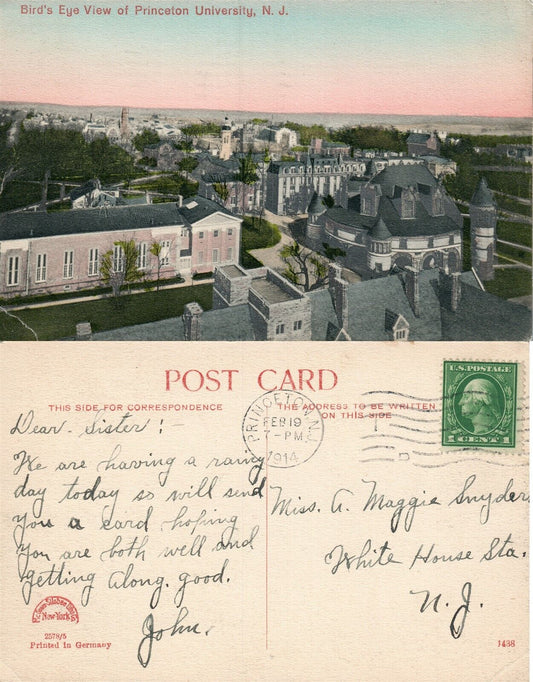 Bird's Eye View of Princeton University, N. J.
POST CARD
THIS SIDE FOR CORRESPONDENCE
THE ADDRESS TO BE WRITTEN ON THIS SIDE
PRINCETON, N.J.
FEB 19
7-PM
1914
U.S. POSTAGE
1 CENT 1
Dear Sister :-
We are having a rainy
day today so will send
you a card hoping
you are both well and
getting along good.
John.
Miss. A. Maggie Snyder
White House Sta.
N. J.
New-York
2578/5
Printed in Germany
1488